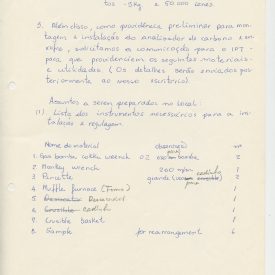 tos - 3Kg a 50.000 ienes.
3. Além disso, como providência preliminar para mon-
tagem e instalação do analisador de carbono e en-
xofre, solicitamos a comunicação para o IPT
para que providenciem os seguintes materiais
e utilidades (Os detalhes serão enviados pos-
teriormente ao vosso escritório).
Assuntos a serem preparados no local:
(1). Lista dos instrumentos necessários para a in-
stalação e regulagem.
Nome do material descrição nº
1. Gas bomba wrench O2 para bomba 2
2. Monkey wrench 200 m/m 1
3. Pincette grande para cadinho 2
4. Muffle furnace (Forno) 1
5. Desiccator 1
6. Crucible cadinho 1
7. Crucible basket 1
8. Sample for rearrangement 6